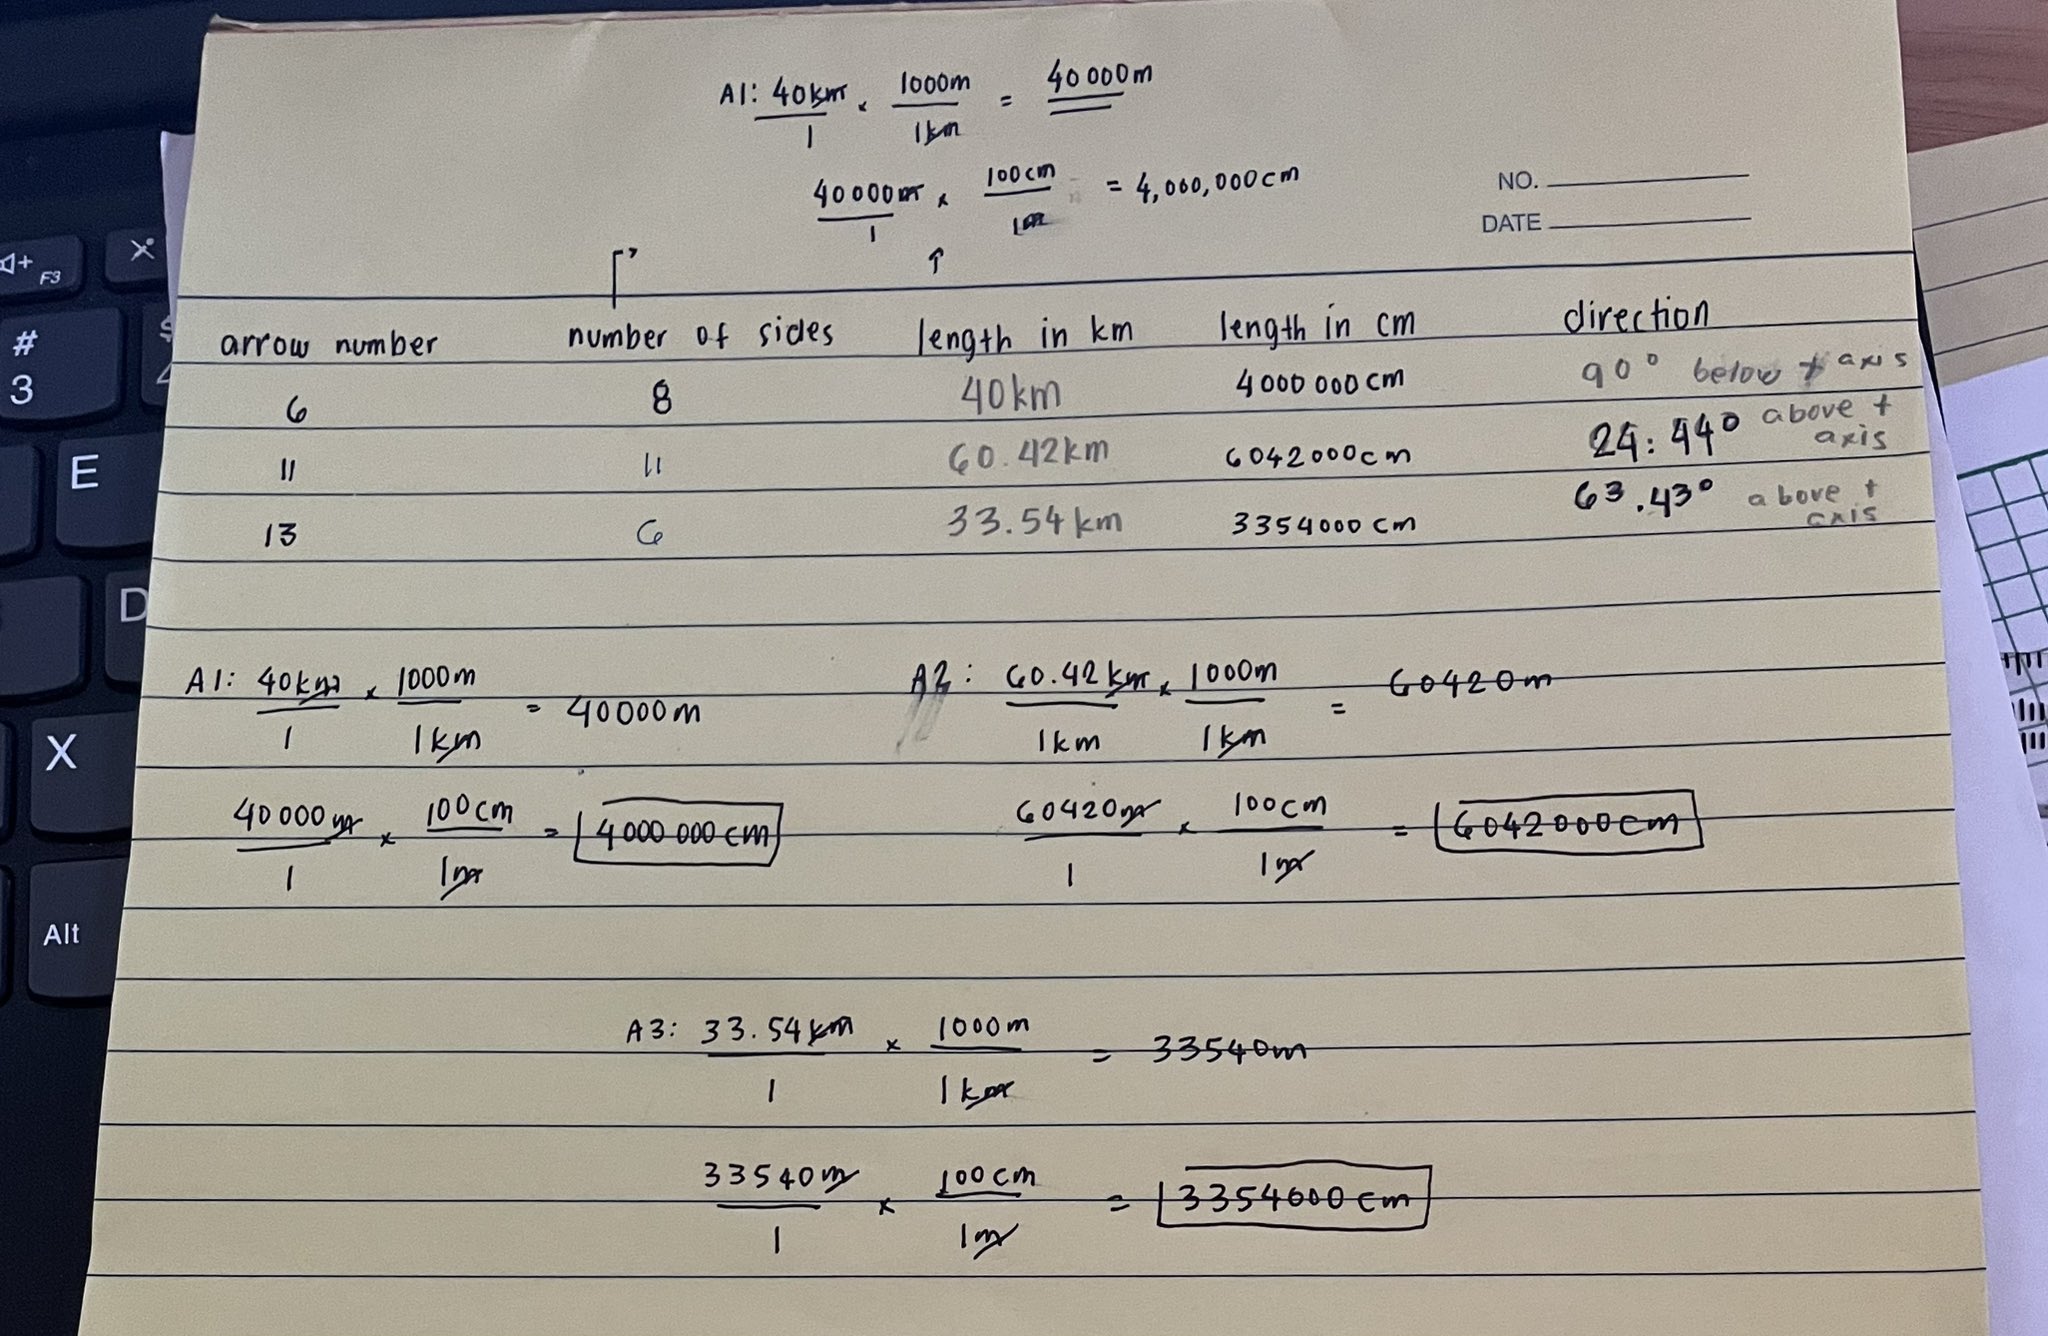 A1: 40km/1 × 1000m/1km = 40 000m
40 000m/1 × 100cm/1m = 4,000,000cm
NO.
DATE
↑
arrow number number of sides length in km length in cm direction
6 8 40km 4000 000 cm 90° below + axis
11 11 60.42km 6042000cm 24.44° above + axis
13 6 33.54km 3354000 cm 63.43° above + axis
A1: 40km/1 × 1000m/1km = 40000m
A2: 60.42km/1km × 1000m/1km = 60420m
40 000m/1 × 100cm/1m = 4000 000 cm
60420m/1 × 100cm/1m = 6042000cm
A3: 33.54km/1 × 1000m/1km = 33540m
33540m/1 × 100cm/1m = 3354000 cm
F3
#
3
E
D
X
Alt